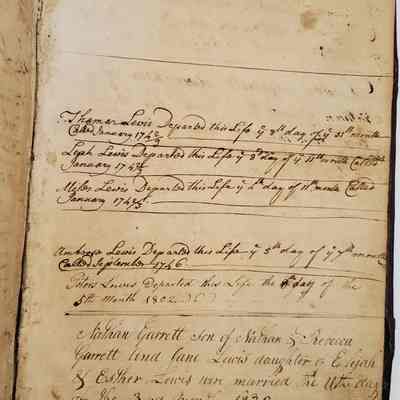 Thamar Lewis Departed this Life ye 8th day of ye 11th month
Called January 174
Lyah Lewis Departed this Life ye day of ye 11th month Called
January 174
Myles Lewis Departed this Life ye day of 11th month Called
January 174
Ambrose Lewis Departed this Life ye 5th day of ye 7th month
Called September 1746
Lewis Departed this Life the day of the
5th Month 1802
Nathan Garrett Son of Nathan & Rebecca
Garrett and Jane Lewis daughter of Elijah
& Esther Lewis were married the 11th day